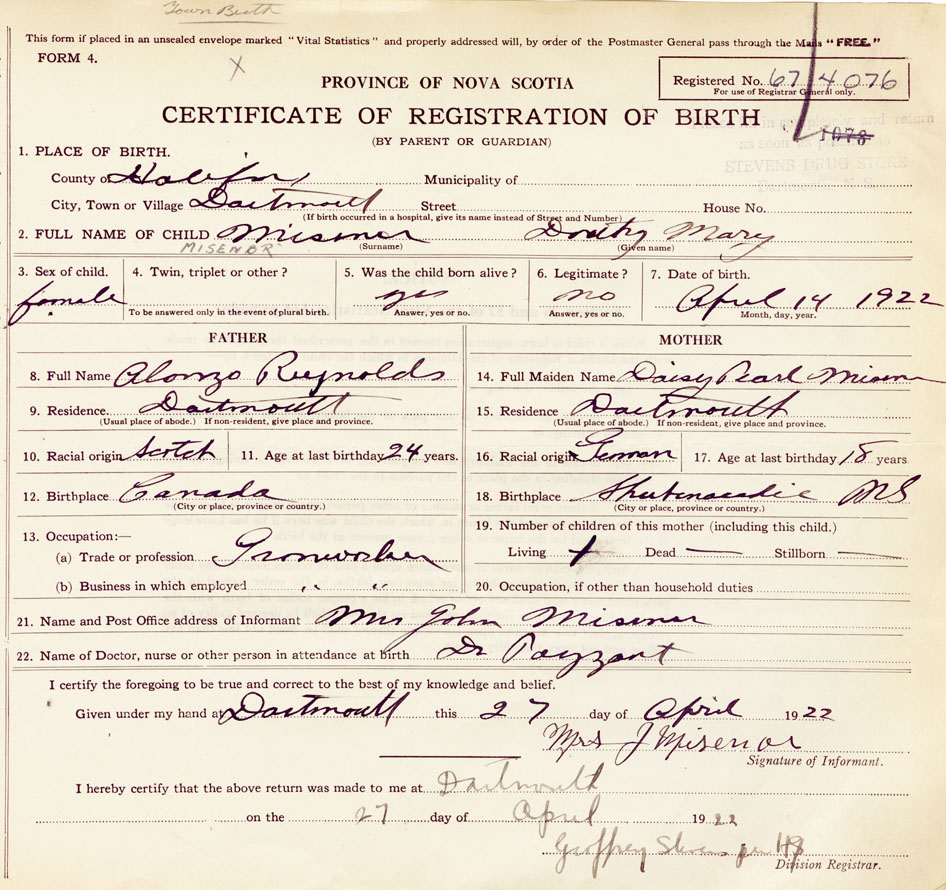 Town Birth
This form if placed in an unsealed envelope marked "Vital Statistics" and properly addressed will, by order of the Postmaster General pass through the Mails "FREE."
FORM 4.
X
PROVINCE OF NOVA SCOTIA
Registered No. 67/4076
For use of Registrar General only.
CERTIFICATE OF REGISTRATION OF BIRTH
1078
(BY PARENT OR GUARDIAN)
and return
as soon as possible to
STEVENS DRUG STORE
Dartmouth, N. S.
1. PLACE OF BIRTH.
County of Halifax Municipality of
City, Town or Village Dartmouth Street House No.
(If birth occurred in a hospital, give its name instead of Street and Number)
2. FULL NAME OF CHILD Misener Dorothy Mary
MISENER (Surname) (Given name)
3. Sex of child. 4. Twin, triplet or other? 5. Was the child born alive? 6. Legitimate? 7. Date of birth.
female yes no April 14 1922
To be answered only in the event of plural birth. Answer, yes or no. Answer, yes or no. Month, day, year.
FATHER
8. Full Name Alonzo Reynolds
9. Residence. Dartmouth
(Usual place of abode.) If non-resident, give place and province.
10. Racial origin Scotch 11. Age at last birthday 24 years.
12. Birthplace Canada
(City or place, province or country.)
13. Occupation:—
(a) Trade or profession Ironworker
(b) Business in which employed " "
MOTHER
14. Full Maiden Name Daisy Pearl Misener
15. Residence Dartmouth
(Usual place of abode.) If non-resident, give place and province.
16. Racial origin German 17. Age at last birthday 18 years.
18. Birthplace Shubenacadie NS
(City or place, province or country.)
19. Number of children of this mother (including this child.)
Living 1 Dead — Stillborn —
20. Occupation, if other than household duties
21. Name and Post Office address of Informant Mrs John Misener
22. Name of Doctor, nurse or other person in attendance at birth Dr Payzant
I certify the foregoing to be true and correct to the best of my knowledge and belief.
Given under my hand at Dartmouth this 27 day of April 1922
Mrs J Misenor
Signature of Informant.
I hereby certify that the above return was made to me at Dartmouth
on the 27 day of April 1922
Geoffrey Stevens per
Division Registrar.